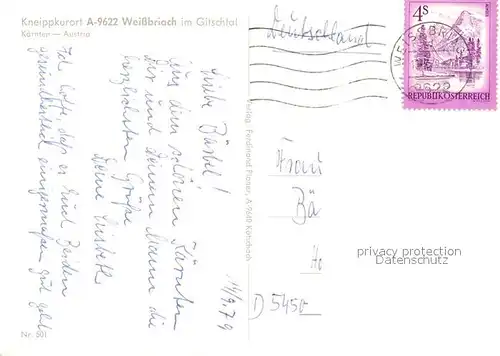 Kneippkurort A-9622 Weißbriach im Gitschtal
Kärnten — Austria
Deutschland
4S
REPUBLIK ÖSTERREICH
WEISSBRIACH
9622
14/9.79
Liebe Bärbel!
Aus dem schönen Kärnten
Dir und Deinem Mann die
herzlichsten Grüße
Deine Lisbeth
Ich hoffe, daß es Euch beiden
gesundheitlich einigermaßen gut geht
Verlag Ferdinand A-9640 Kötschach
Frau
Bä
Ho
D 5450
privacy protection
Datenschutz
Nr. 501